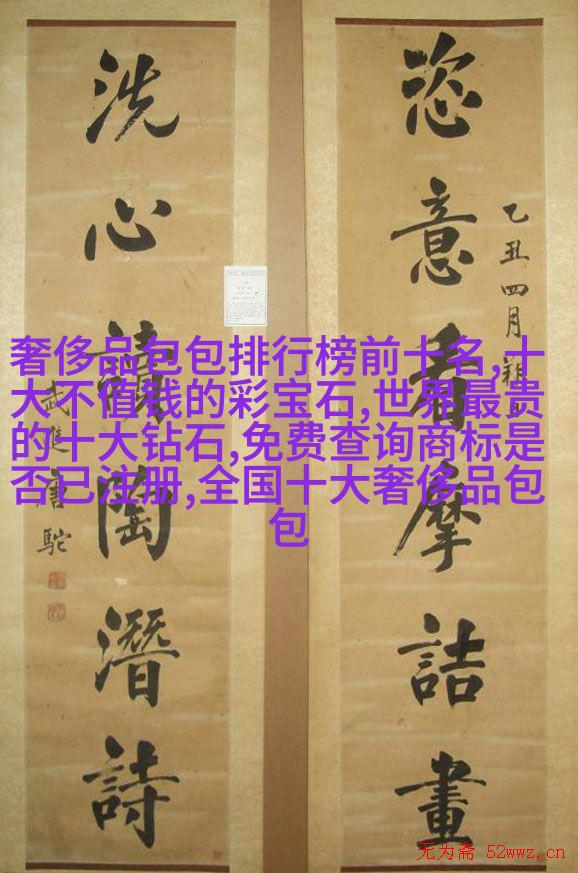 恣意看摩詰畫
乙丑四月
洗心讀陶潛詩
武進唐駝
奢侈品包包排行榜前十名,十
大不值钱的彩宝石,世界最贵
的十大钻石,免费查询商标是
否已注册,全国十大奢侈品包
包
无为斋 52wwz.cn